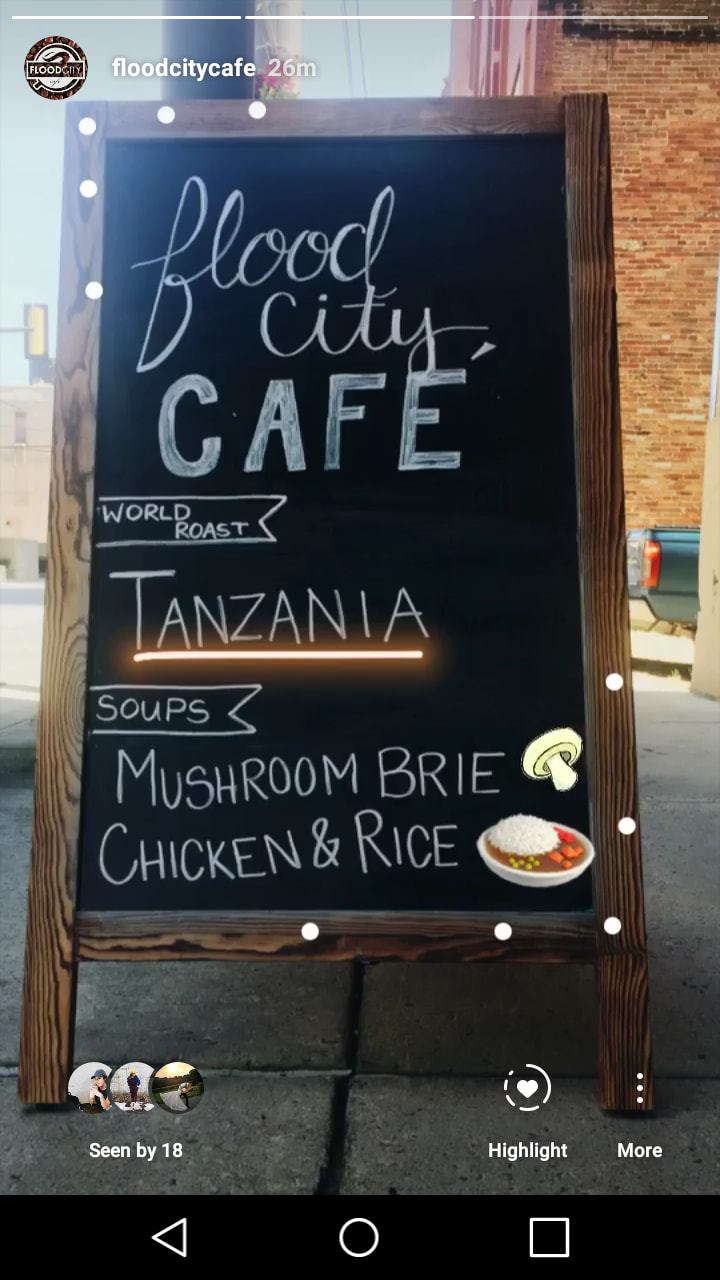 floodcitycafe 26m
FLOODCITY
flood
city
CAFÉ
WORLD
ROAST
TANZANIA
SOUPS
MUSHROOM BRIE
CHICKEN & RICE
Seen by 18
Highlight
More